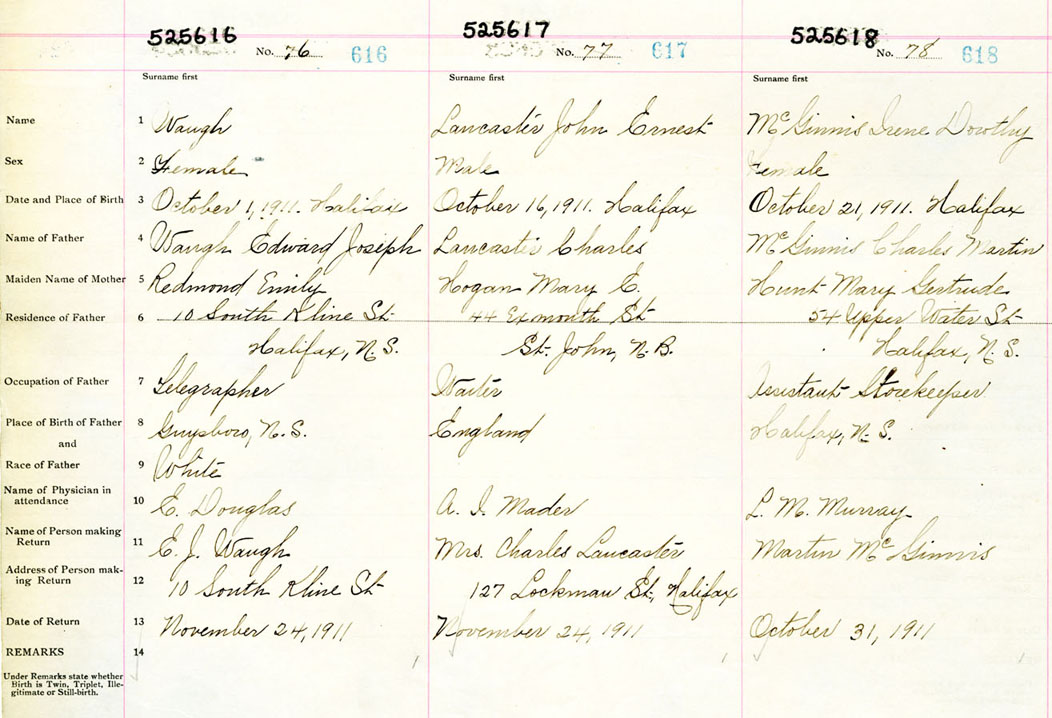 525616 525617 525618
No. 76 616 No. 77 617 No. 78 618
Surname first Surname first Surname first
Name 1 Waugh Lancaster John Ernest McGinnis Irene Dorothy
Sex 2 Female Male Female
Date and Place of Birth 3 October 1, 1911. Halifax October 16, 1911. Halifax October 21, 1911. Halifax
Name of Father 4 Waugh Edward Joseph Lancaster Charles McGinnis Charles Martin
Maiden Name of Mother 5 Redmond Emily Hogan Mary E. Hunt Mary Gertrude
Residence of Father 6 10 South Kline St 44 Exmouth St 54 Upper Water St
Halifax, N.S. St. John, N.B. Halifax, N.S.
Occupation of Father 7 Telegrapher Waiter Assistant Storekeeper
Place of Birth of Father 8 Guysboro, N.S. England Halifax, N.S.
and
Race of Father 9 White
Name of Physician in
attendance 10 E. Douglas A. I. Mader L. M. Murray
Name of Person making
Return 11 E. J. Waugh Mrs. Charles Lancaster Martin McGinnis
Address of Person mak-
ing Return 12 10 South Kline St 127 Lockman St., Halifax
Date of Return 13 November 24, 1911 November 24, 1911 October 31, 1911
REMARKS 14
Under Remarks state whether
Birth is Twin, Triplet, Ille-
gitimate or Still-birth.